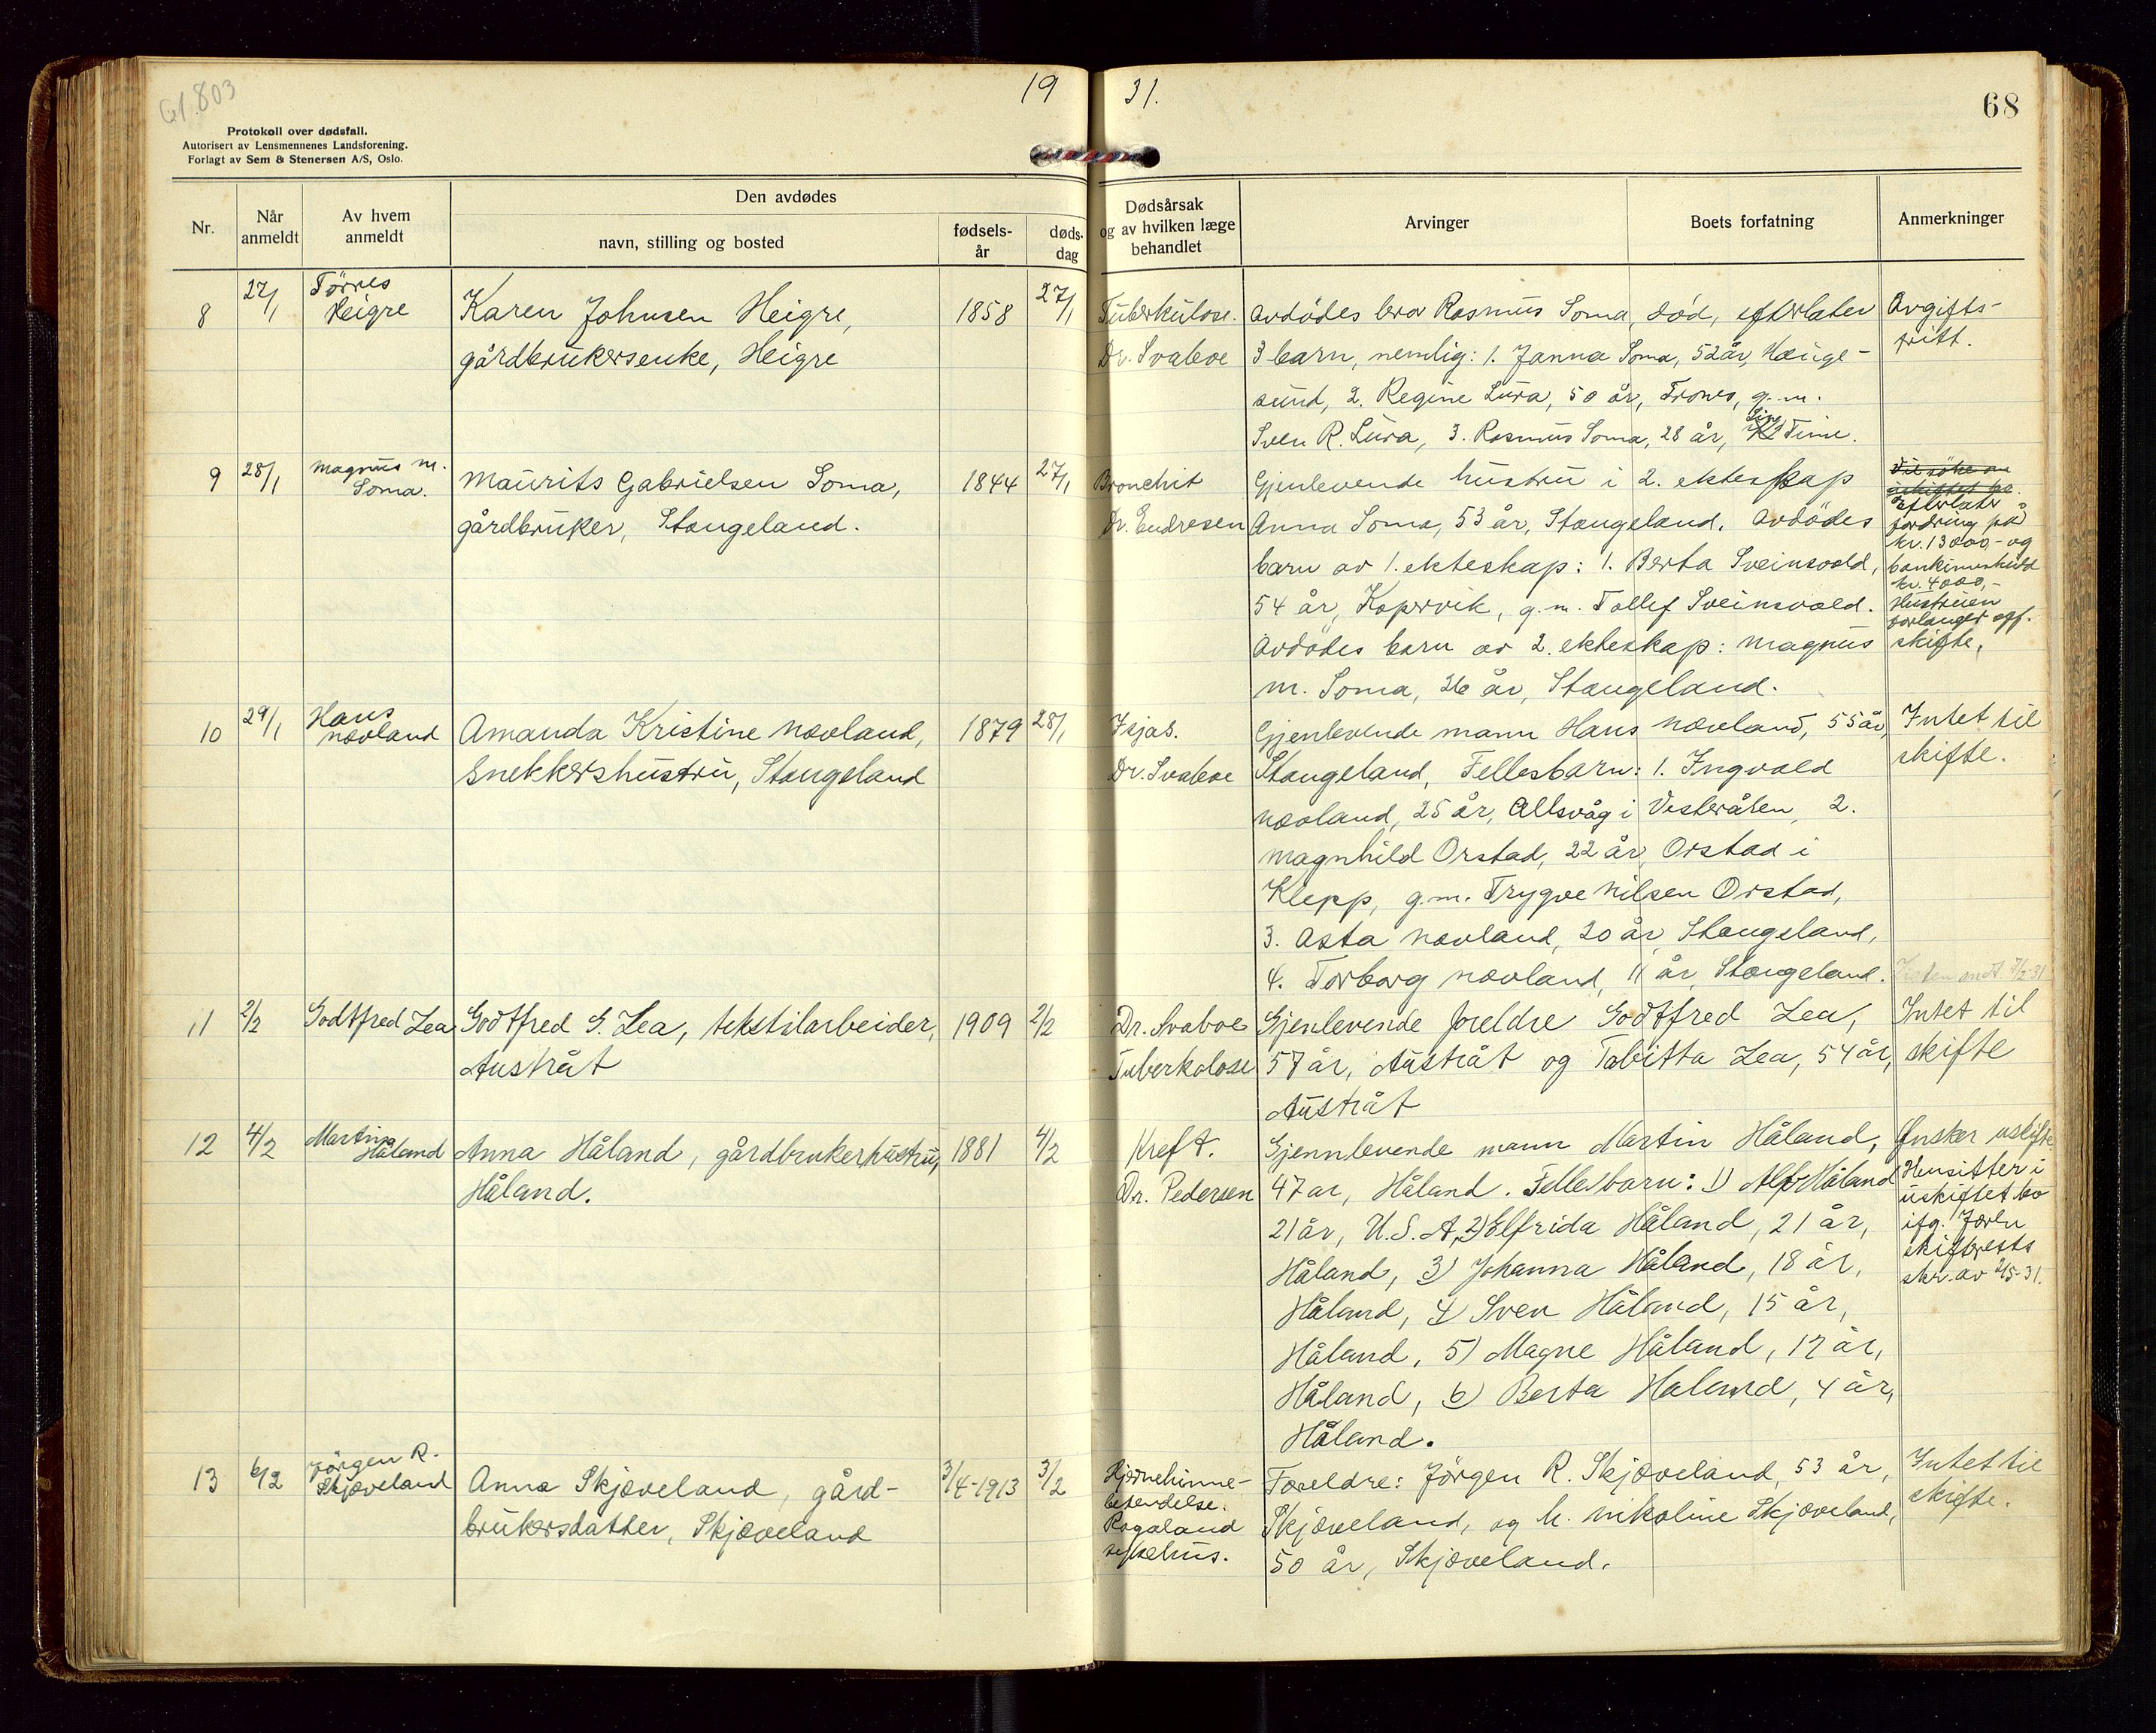 Gl. 803
19 31.
68
Protokoll over dødsfall.
Autorisert av Lensmennenes Landsforening.
Forlagt av Sem & Stenersen A/S, Oslo.
Nr.
Når anmeldt
Av hvem anmeldt
Den avdødes
navn, stilling og bosted
fødsels-
år
døds-
dag
Dødsårsak
og av hvilken læge
behandlet
Arvinger
Boets forfatning
Anmerkninger
8
27/1
Törres
Heigre
Karen Johnsen Heigre,
gårdbrukersenke, Heigre
1858
27/1
Tuberkulose.
Dr. Svaboe
Avdödes bror Rasmus Soma, död, efterlater
3 barn, nemlig: 1. Janna Soma, 52 år, Hauge-
sund, 2. Regine Lura, 50 år, Trones, g.m.
Sven R. Lura, 3. Rasmus Soma, 28 år, Time.
Avgifts-
fritt.
9
28/1
Magnus M.
Soma.
Maurits Gabrielsen Soma,
gårdbruker, Stangeland.
1844
27/1
Bronchit
Dr. Endresen
Gjenlevende hustru i 2. ekteskap
Anna Soma, 53 år, Stangeland. Avdödes
barn av 1. ekteskap: 1. Berta Sveinsvold,
54 år, Kopervik, g.m. Tollef Sveinsvold.
Avdödes barn av 2. ekteskap: Magnus
M. Soma, 26 år, Stangeland.
Efterlater
fordring på
kr. 13000,- og
bankinnskudd
kr. 4000,-
Hustruen
forlanger off.
skifte.
10
29/1
Hans
Nævland
Amanda Kristine Nævland,
snekkershustru, Stangeland
1879
28/1
Isjas.
Dr. Svaboe
Gjenlevende mann Hans Nævland, 55 år,
Stangeland, Fellesbarn: 1. Ingvald
Nævland, 25 år, Alsvåg i Vesterålen, 2.
Magnhild Orstad, 22 år, Orstad i
Klepp, g.m. Trygve Nilsen Orstad,
3. Asta Nævland, 20 år, Stangeland,
4. Torborg Nævland, 11 år, Stangeland.
Intet til
skifte.
11
2/2
Godtfred Lea
Godtfred G. Lea, tekstilarbeider,
Austråt
1909
2/2
Dr. Svaboe
Tuberkolose
Gjenlevende foreldre Godtfred Lea,
57 år, Austråt og Tabitta Lea, 54 år,
Austråt
Intet til
skifte
12
4/2
Martin
Håland
Anna Håland, gårdbrukerhustru,
Håland.
1881
4/2
Kreft.
Dr. Pedersen
Gjennlevende mann Martin Håland,
47 ar, Håland. Fellesbarn: 1) Alf Håland
21 år, U.S.A, 2) Elfrida Håland, 21 år,
Håland, 3) Johanna Håland, 18 år,
Håland, 4) Sven Håland, 15 år,
Håland, 5) Magne Håland, 12 år,
Håland, 6) Berta Håland, 4 år,
Håland.
Ønsker uskifte
Hensitter i
uskiftet bo
ifg. Jæren
skifterests
skr. av 2/5-31.
13
6/2
Jörgen R.
Skjæveland
Anna Skjæveland, gård-
brukersdatter, Skjæveland
3/4-1913
3/2
Hjernehinne-
betendelse.
Rogaland
sykehus.
Foreldre: Jörgen R. Skjæveland, 53 år,
Skjæveland, og h. Nikoline Skjæveland,
50 år, Skjæveland.
Intet til
skifte.